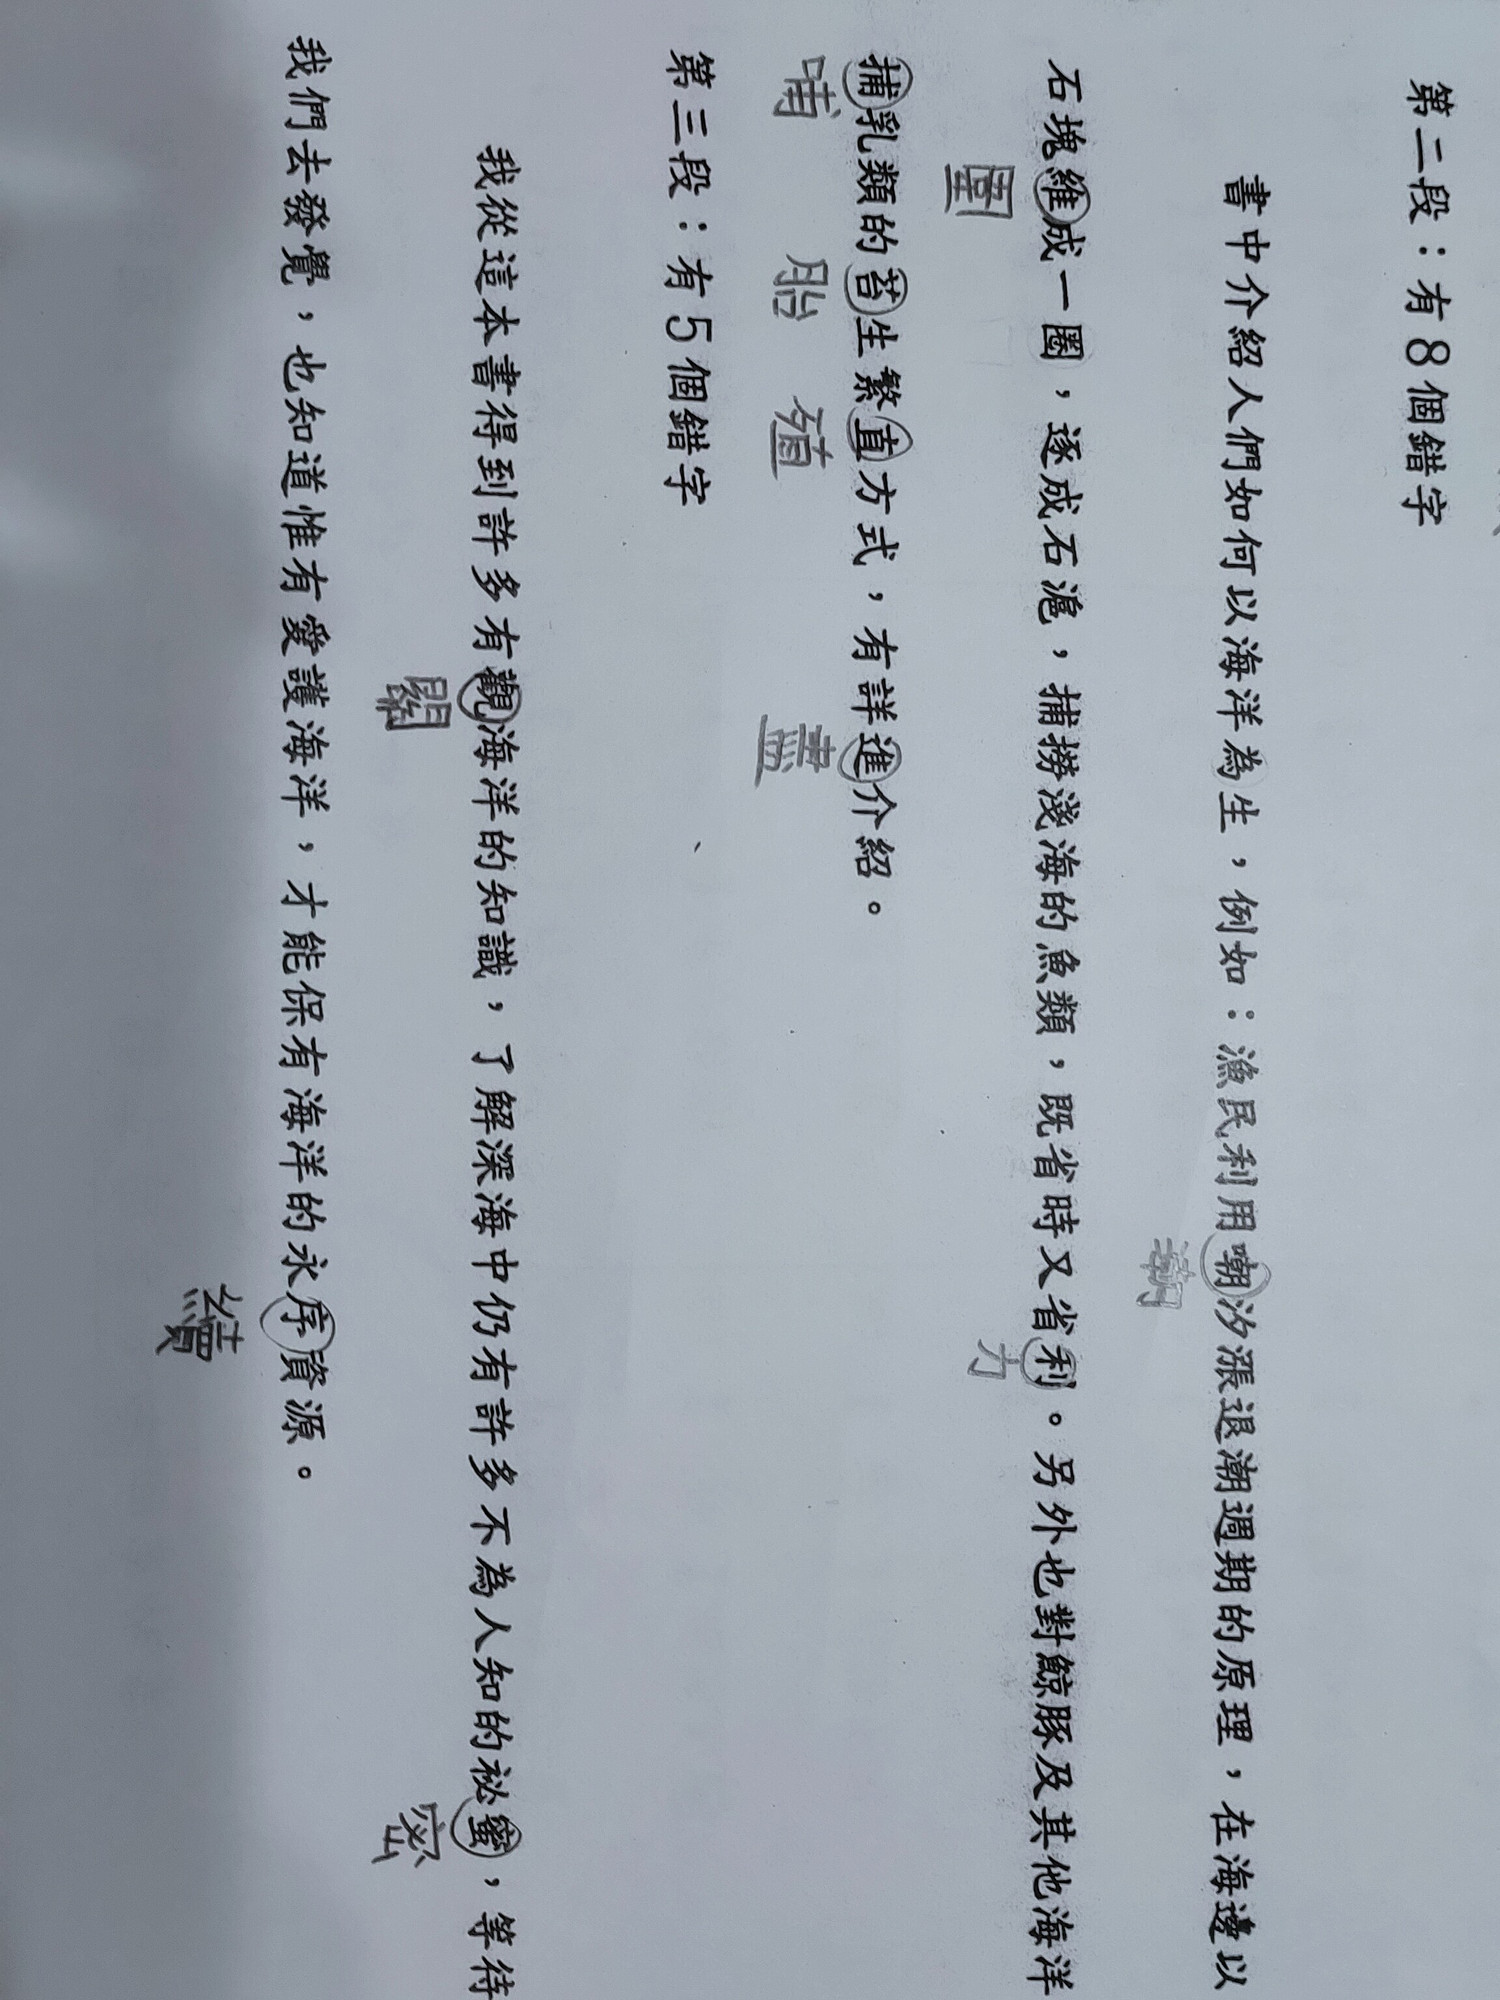 第二段：有8個錯字
書中介紹人們如何以海洋為生，例如：漁民利用嘲汐漲退潮週期的原理，在海邊以
潮
石塊維成一圈，逐成石滬，捕撈淺海的魚類，既省時又省利。另外也對鯨豚及其他海洋
圍 力
捕乳類的苔生繁直方式，有詳進介紹。
哺 胎 殖 盡
第三段：有5個錯字
我從這本書得到許多有觀海洋的知識，了解深海中仍有許多不為人知的祕蜜，等待
關 密
我們去發覺，也知道惟有愛護海洋，才能保有海洋的永序資源。
續